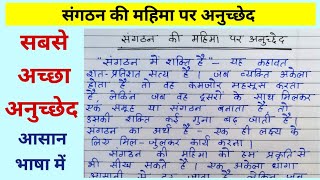 संगठन की महिमा पर अनुच्छेद
सबसे
अच्छा
अनुच्छेद
आसान
भाषा में
संगठन की महिमा पर अनुच्छेद
"संगठन में शक्ति है" - यह कहावत
शत-प्रतिशत सत्य है । जब व्यक्ति अकेला
होता है तो वह कमजोर महसूस करता
है, लेकिन जब वह दूसरों के साथ मिलकर
एक समूह या संगठन बनाता है तो
उसकी शक्ति कई गुना बढ़ जाती है।
संगठन का अर्थ है - एक ही लक्ष्य के
लिए मिल-जुलकर कार्य करना ।
संगठन की महिमा को हम प्रकृति से
भी सीख सकते हैं । एक अकेला धागा
आसानी से जाता है, लेकिन जब